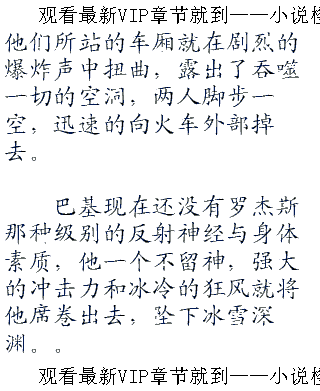 观看最新VIP章节就到——小说检
他们所站的车厢就在剧烈的
爆炸声中扭曲，露出了吞噬
一切的空洞，两人脚步一
空，迅速的向火车外部掉
去。
巴基现在还没有罗杰斯
那种级别的反射神经与身体
素质，他一个不留神，强大
的冲击力和冰冷的狂风就将
他席卷出去，坠下冰雪深
渊。。
观看最新VIP章节就到——小说检